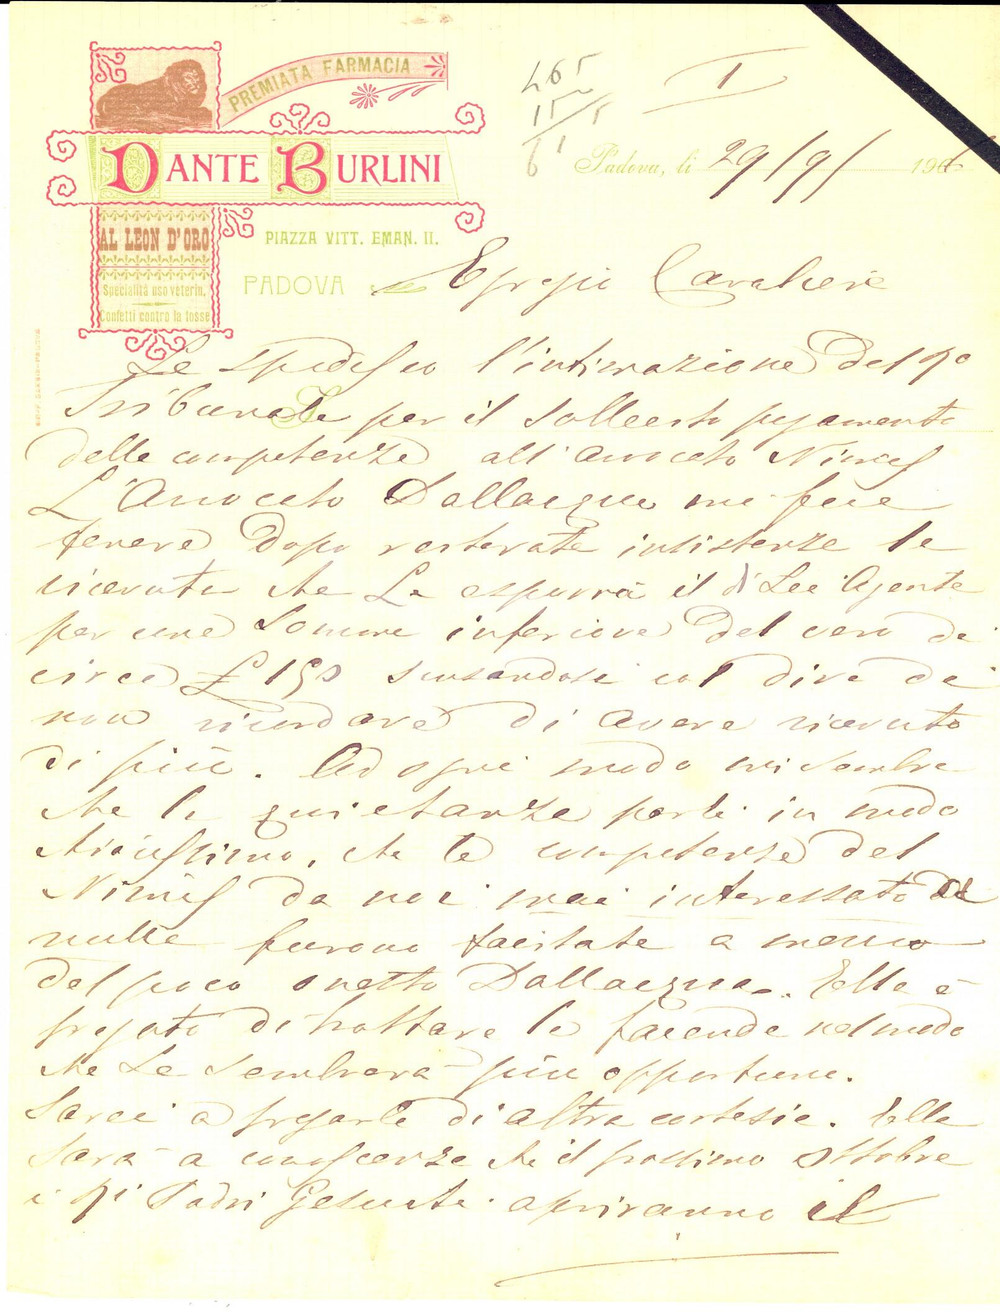 PREMIATA FARMACIA
DANTE BURLINI
AL LEON D'ORO
Specialità uso veterin.
Confetti contro la tosse
PIAZZA VITT. EMAN. II.
PADOVA
465
15
61
I
Padova, li 29/9/ 190
Egregio Cavaliere
Le spedisco l'intimazione del
Tribunale per il sollecito pagamento
delle competenze all'avvocato
L'Avvocato Dallacqua mi fece
tenere dopo reiterate insistenze la
ricevuta che Le esporrà il di Lei Agente
per una somma inferiore del vero di
circa £ 150 scusandosi col dire di
non ricordare di avere ricevuto
di più. Ad ogni modo mi sembra
che la quietanza parli in modo
chiarissimo, che le competenze del
da noi mai interessato di
nulla furono tacitate a mezzo
del poco onesto Dallacqua. Ella è
pregato di trattare la facenda nel modo
che Le sembrerà più opportuno.
Sarei a pregarla di altra cortesia. Ella
sarà a conoscenza che il prossimo Ottobre
i Padri Gesuiti apriranno il